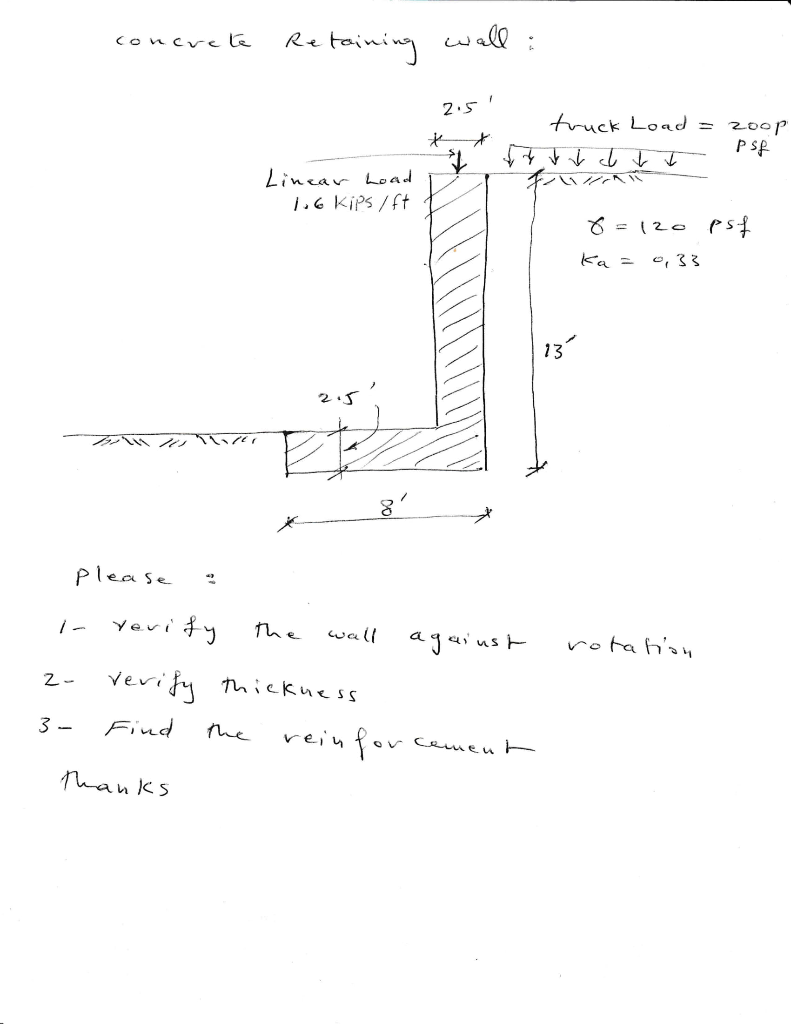 concrete Retaining wall :
2.5'
truck Load = 200p
psf
Linear Load
1.6 kips/ft
γ = 120 psf
Ka = 0,33
13'
2.5'
8'
please :
1- verify the wall against rotation
2- verify thickness
3- Find the reinforcement
thanks